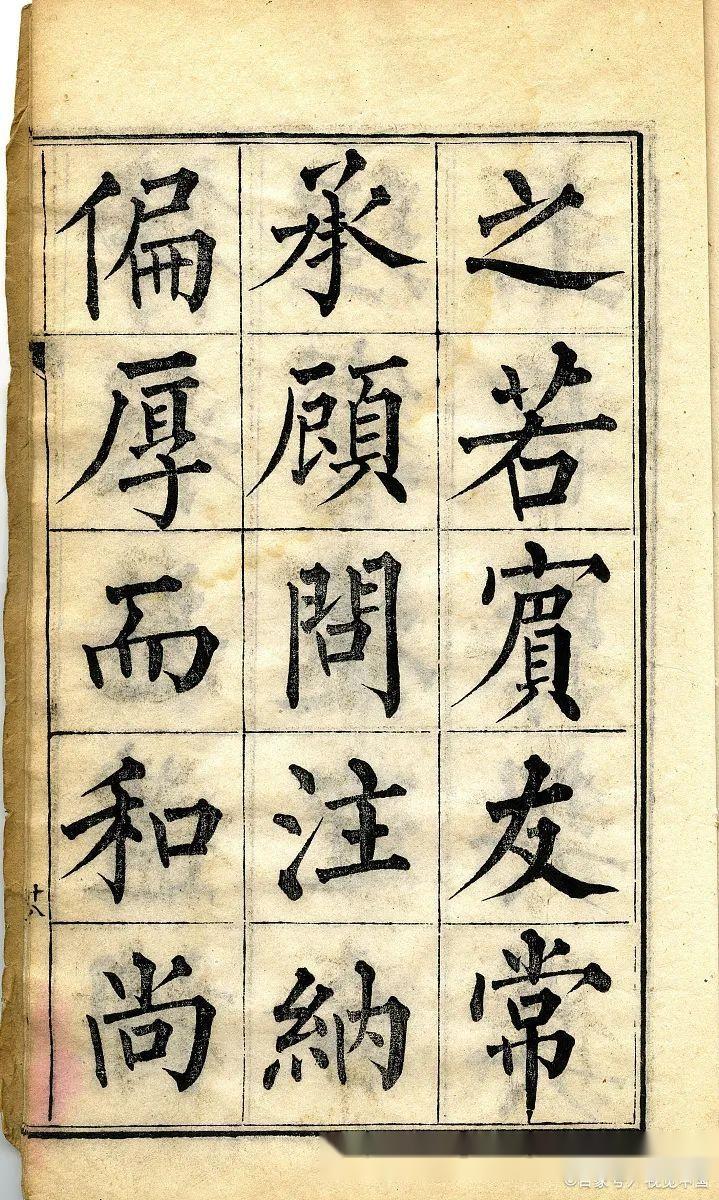 之若賔友常
承顧問注納
偏厚而和尚
十六